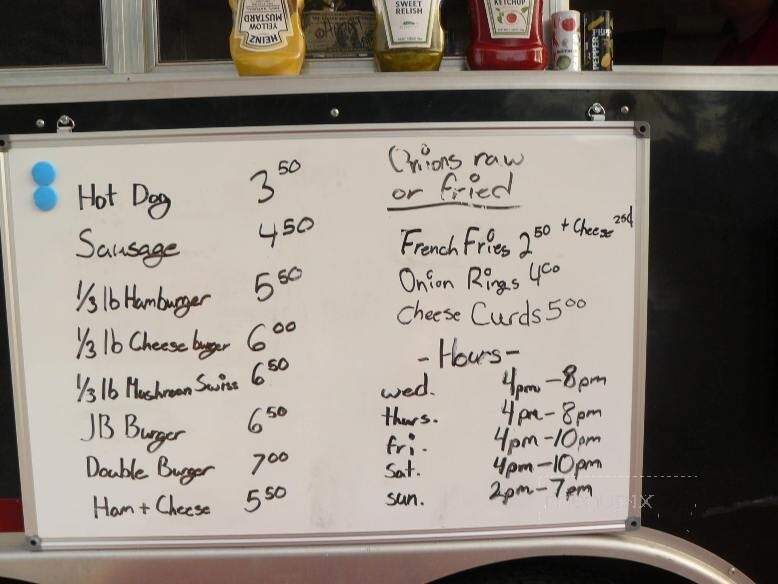 HEINZ
YELLOW
MUSTARD
SWEET
RELISH
KETCHUP
Hot Dog 3 50
Sausage 4 50
1/3 lb Hamburger 5 50
1/3 lb Cheese burger 6 00
1/3 lb Mushroom Swiss 6 50
JB Burger 6 50
Double Burger 7 00
Ham + Cheese 5 50
Onions raw
or fried
French Fries 2 50 + Cheese 25¢
Onion Rings 4 00
Cheese Curds 5 00
- Hours -
wed. 4pm - 8pm
thurs. 4pm - 8pm
fri. 4pm - 10pm
Sat. 4pm - 10pm
sun. 2pm - 7pm